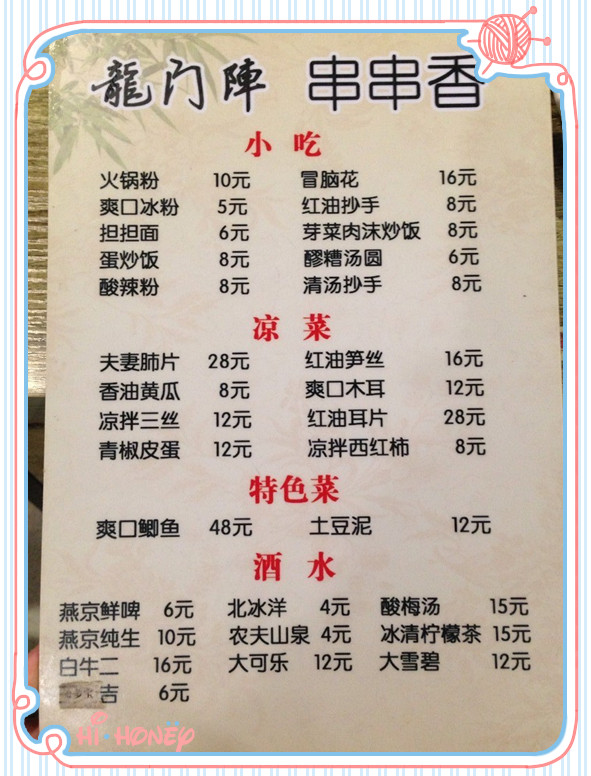 龍门陣 串串香
小吃
火锅粉 10元 冒脑花 16元
爽口冰粉 5元 红油抄手 8元
担担面 6元 芽菜肉沫炒饭 8元
蛋炒饭 8元 醪糟汤圆 6元
酸辣粉 8元 清汤抄手 8元
凉菜
夫妻肺片 28元 红油笋丝 16元
香油黄瓜 8元 爽口木耳 12元
凉拌三丝 12元 红油耳片 28元
青椒皮蛋 12元 凉拌西红柿 8元
特色菜
爽口鲫鱼 48元 土豆泥 12元
酒水
燕京鲜啤 6元 北冰洋 4元 酸梅汤 15元
燕京纯生 10元 农夫山泉 4元 冰清柠檬茶 15元
白牛二 16元 大可乐 12元 大雪碧 12元
吉 6元
Hi·HONEY